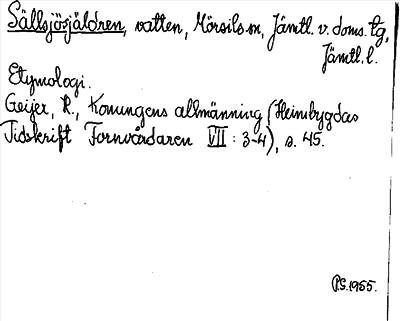 Sällsjösjäldren, vatten, Mörsils sn, Jämtl. v. doms. tg,
Jämtl. l.
Etymologi.
Geijer, R., Konungens allmänning (Heimbygdas
Tidskrift Fornvårdaren VII : 3-4), s. 45.
P.S. 1955.